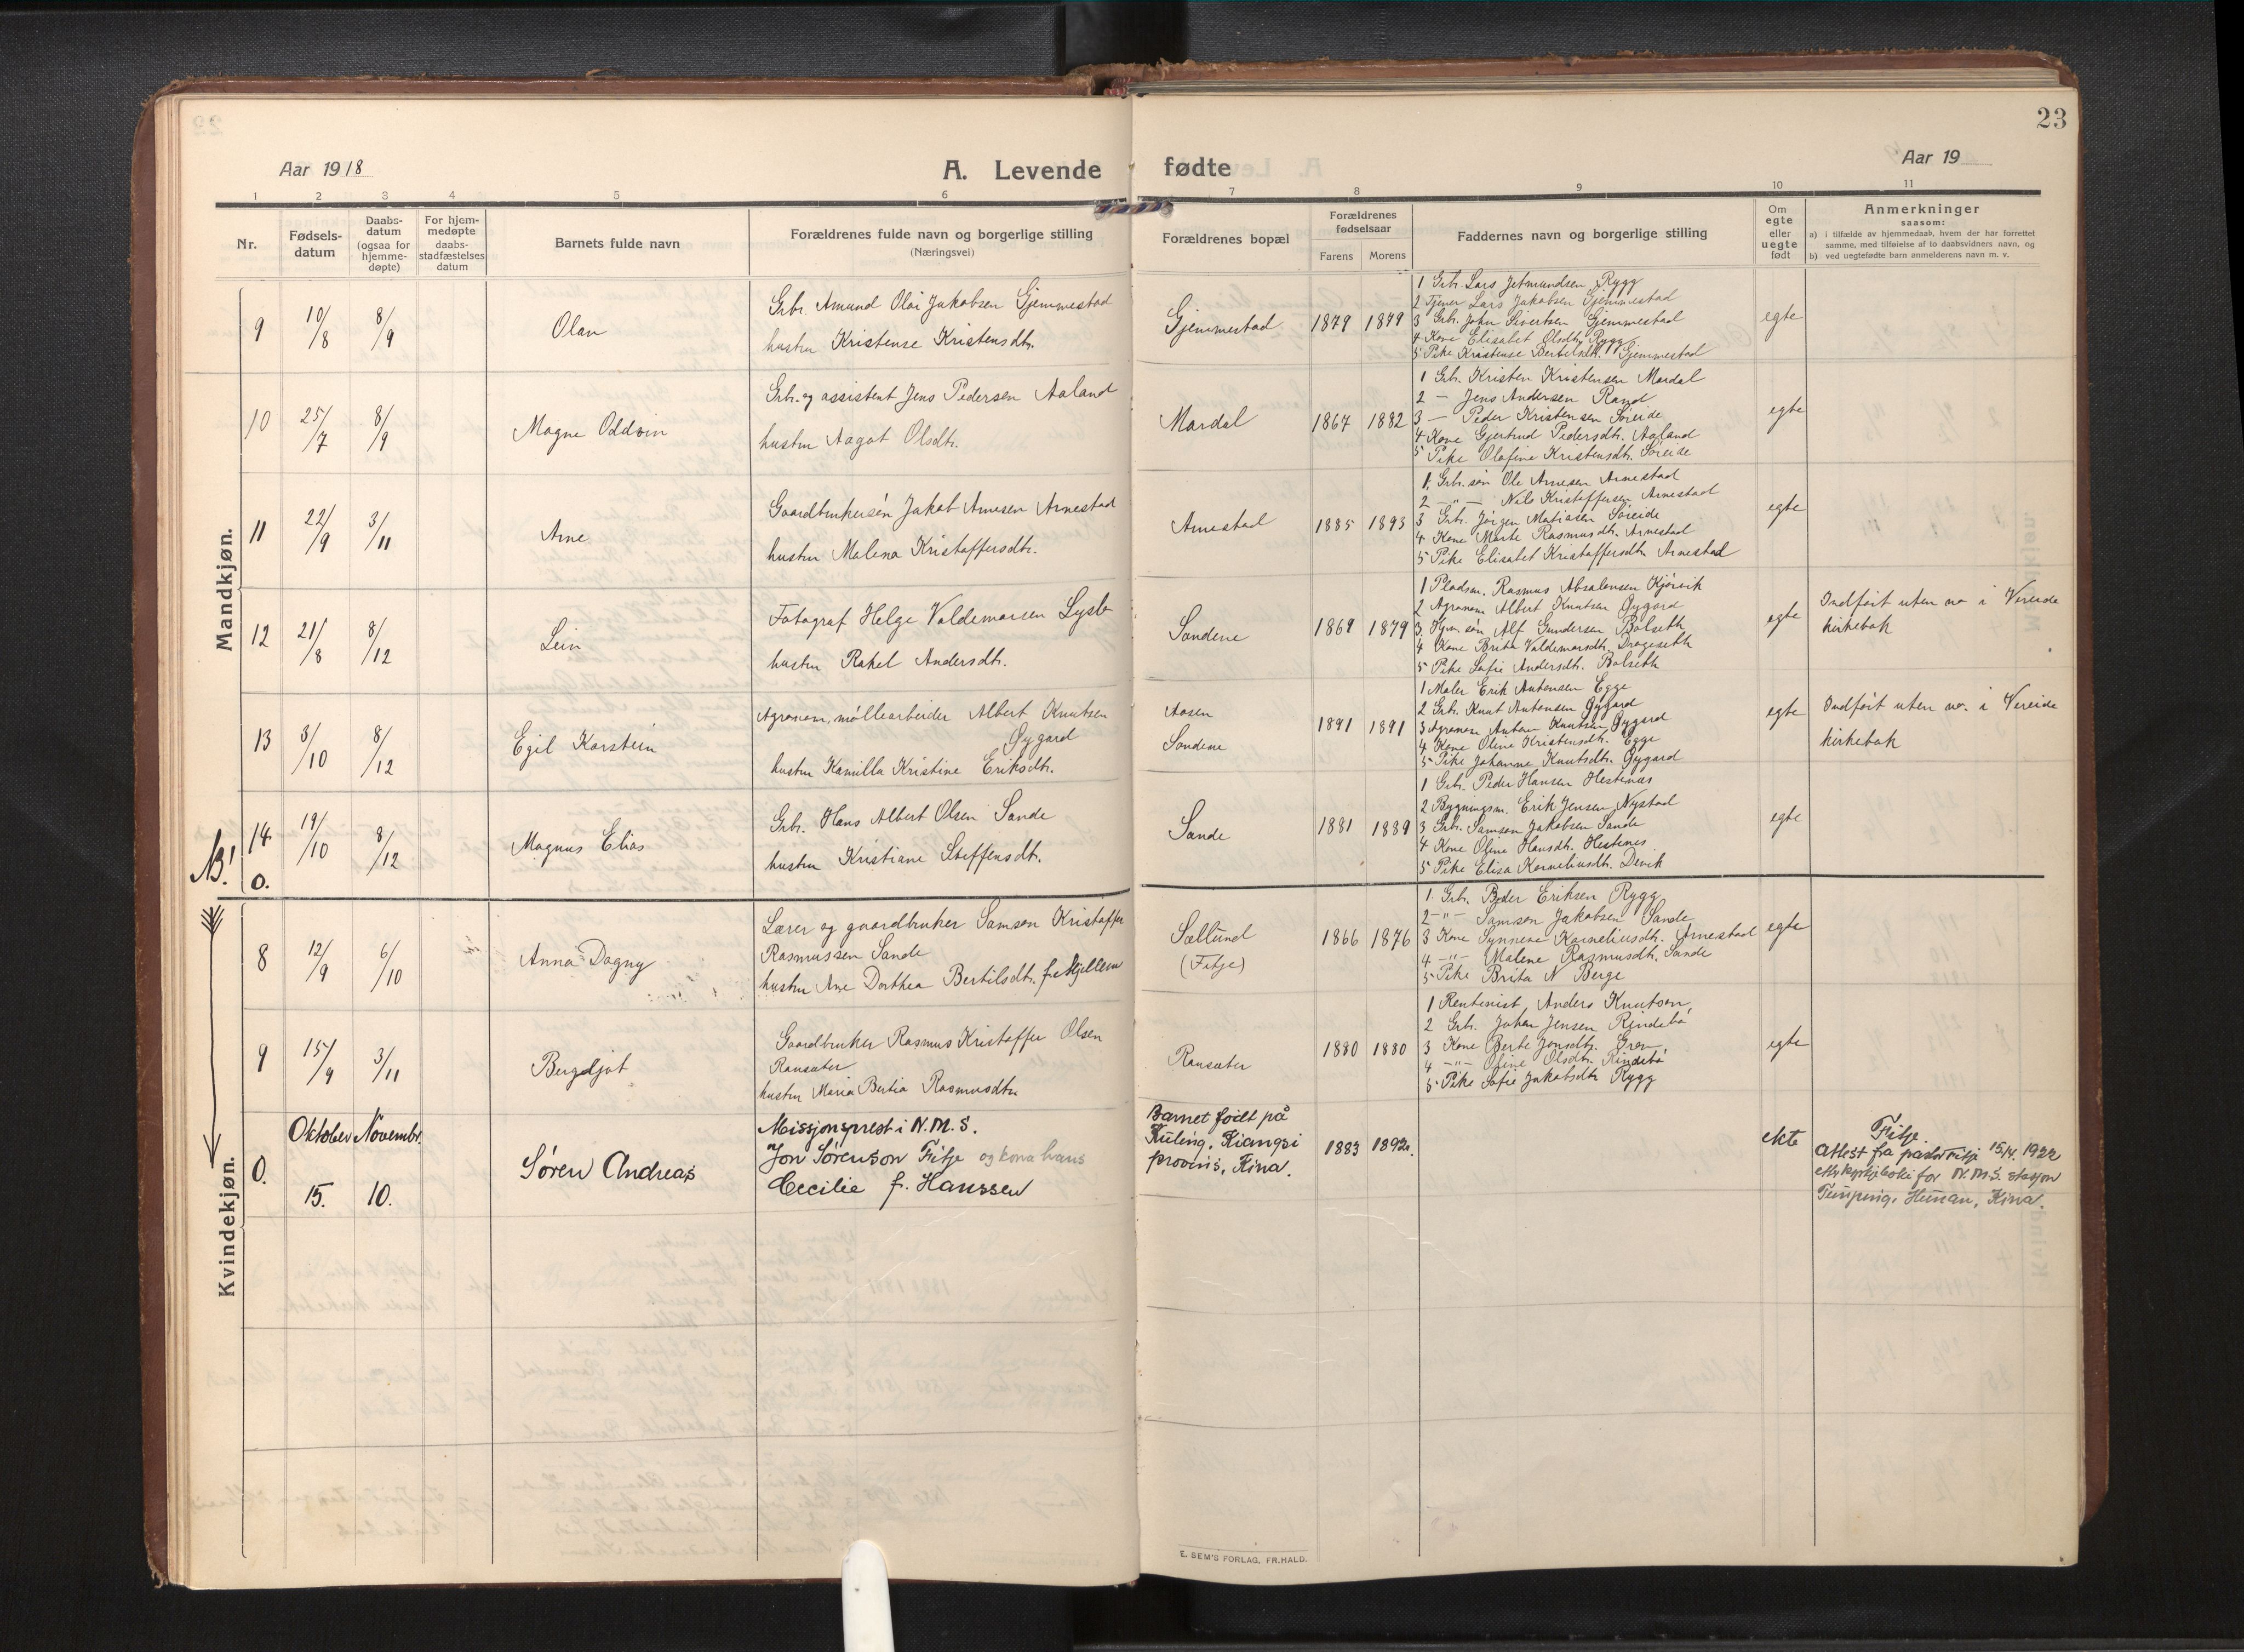 23
Aar 1918
A. Levende fødte
Aar 19
1 2 3 4 5 6 7 8 9 10 11
Nr.
Fødsels-
datum
Daabs-
datum
(ogsaa for
hjemme-
døpte)
For hjem-
medøpte
daabs-
stadfæstelses
datum
Barnets fulde navn
Forældrenes fulde navn og borgerlige stilling
(Næringsvei)
Forældrenes bopæl
Forældrenes
fødselsaar
Farens Morens
Faddernes navn og borgerlige stilling
Om
egte
eller
uegte
født
Anmerkninger
saasom:
a) i tilfælde av hjemmedaab, hvem der har forrettet
samme, med tilføielse af to daabsvidners navn, og
b) ved uegtefødte barn anmelderens navn m. v.
Mandkjøn.
9 10/8 8/9 Olav
Grb. Amund Olai Jakobsen Gjemmestad
hustru Kristense Kristensdtr.
Gjemmestad 1879 1879
1 Grb. Lars Jetmundsen Rygg
2 Tjener Lars Jakobsen Gjemmestad
3 Grb. John Sivertsen Gjemmestad
4 Kone Elisabet Olsdtr. Rygg
5 Pike Kristense Bertelsdtr. Gjemmestad
egte
10 25/7 8/9 Magne Oddvin
Grb. og assistent Jens Pedersen Aaland
hustru Aagot Olsdtr.
Mardal 1867 1882
1 Grb. Kristen Kristensen Mardal
2 — Jens Andersen Rand
3 — Peder Kristensen Søreide
4 Kone Gjertrud Pedersdtr. Aaland
5 Pike Olafine Kristensdtr. Søreide
egte
11 22/9 3/11 Arne
Gaardbrukersøn Jakob Arnesen Arnestad
hustru Malena Kristoffersdtr.
Arnestad 1885 1893
1. Grb. søn Ole Arnesen Arnestad
2 —"— Nils Kristoffersen Arnestad
3 Grb. Jörgen Matiasen Søreide
4 Kone Marte Rasmusdtr. Arnestad
5 Pike Elisabet Kristoffersdtr. Arnestad
egte
12 21/8 8/12 Leiv
Fotograf Helge Valdemarsen Lysbø
hustru Rakel Andersdtr.
Sandene 1869 1879
1 Pladsm. Rasmus Absalonsen Kjørvik
2 Agronom Albert Knutsen Øygard
3. søn Alf Gundersen Bolseth
4 Kone Brita Valdemarsdtr. Drageseth
5 Pike Sofie Andersdtr. Bolseth
egte
Indført uten no i Vereide
kirkebok
13 3/10 8/12 Egil Karstein
Agronom, møllearbeider Albert Knutsen
Øygard
hustru Kamilla Kristine Eriksdtr.
Aasen
Sandene
1891 1891
1 Maler Erik Antonsen Egge
2 Grb. Knut Antonsen Øygard
3 Agronom Anton Knutsen Øygard
4 Kone Oline Kristensdtr. Egge
5 Pike Johanne Knutsdtr. Øygard
egte
Indført uten no. i Vereide
kirkebok
14. 19/10 8/12 Magnus Elias
Grb. Hans Albert Olsen Sande
hustru Kristiane Steffensdtr.
Sande 1881 1889
1 Grb. Peder Hansen Hestenæs
2 Bygningsm. Erik Jensen Nystad
3 Grb. Samson Jakobsen Sande
4 Kone Oline Hansdtr. Hestenes
5 Pike Elisa Korneliusdtr. Devik
egte
NB!
0.
Kvindekjøn.
8 12/9 6/10 Anna Dagny
Lærer og gaardbruker Samson Kristoffer
Rasmussen Sande
hustru Ane Dorthea Bertilsdtr. f.
Sællund
(Fitje)
1866 1876
1. Grb. Peder Eriksen Rygg
2 —"— Samson Jakobsen Sande
3 Kone Synneve Korneliusdtr. Arnestad
4 —"— Malene Rasmusdtr. Sande
5 Pike Brita N Berge
egte
9 15/9 3/11 Bergljot
Gaardbruker Rasmus Kristoffer Olsen
Ransæter
hustru Maria Bertia Rasmusdtr
Ransæter 1880 1880
1 Rentenist Anders Knutsen
2 Grb. Johan Jensen Rindebø
3 Kone Berte Jonsdtr. Grov
4 —"— Oline Olsdtr. Rindebø
5 Pike Sofie Jakobsdtr Rygg
egte
0. Oktober Novembr.
15. 10.
Søren Andreas
Missjonsprest i N.M.S.
Jon Sørenson Fitje og kona hans
Cecilie f. Hanssen
Barnet født på
Kuling, Kiangsi
provins, Kina.
1883 1892.
ekte
Fitje.
Attest fra pastor Fitje 15/4. 1922
etter kyrkjeboki for N.M.S. stasjon
Hunan, Kina.
E. SEM'S FORLAG, FR.HALD.